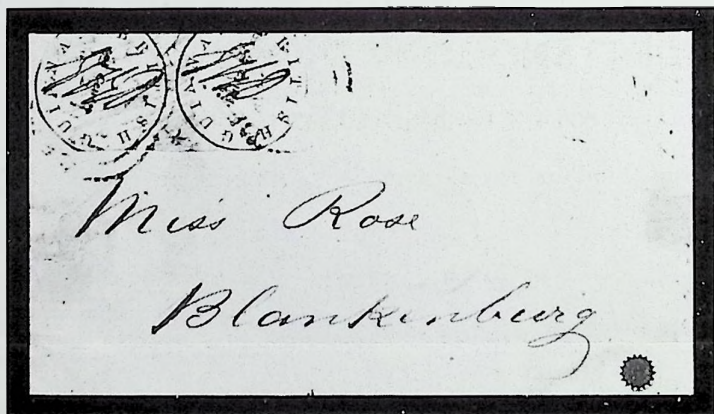 BRITISH GUIANA BRITISH GUIANA
Miss Rose
Blankenburg